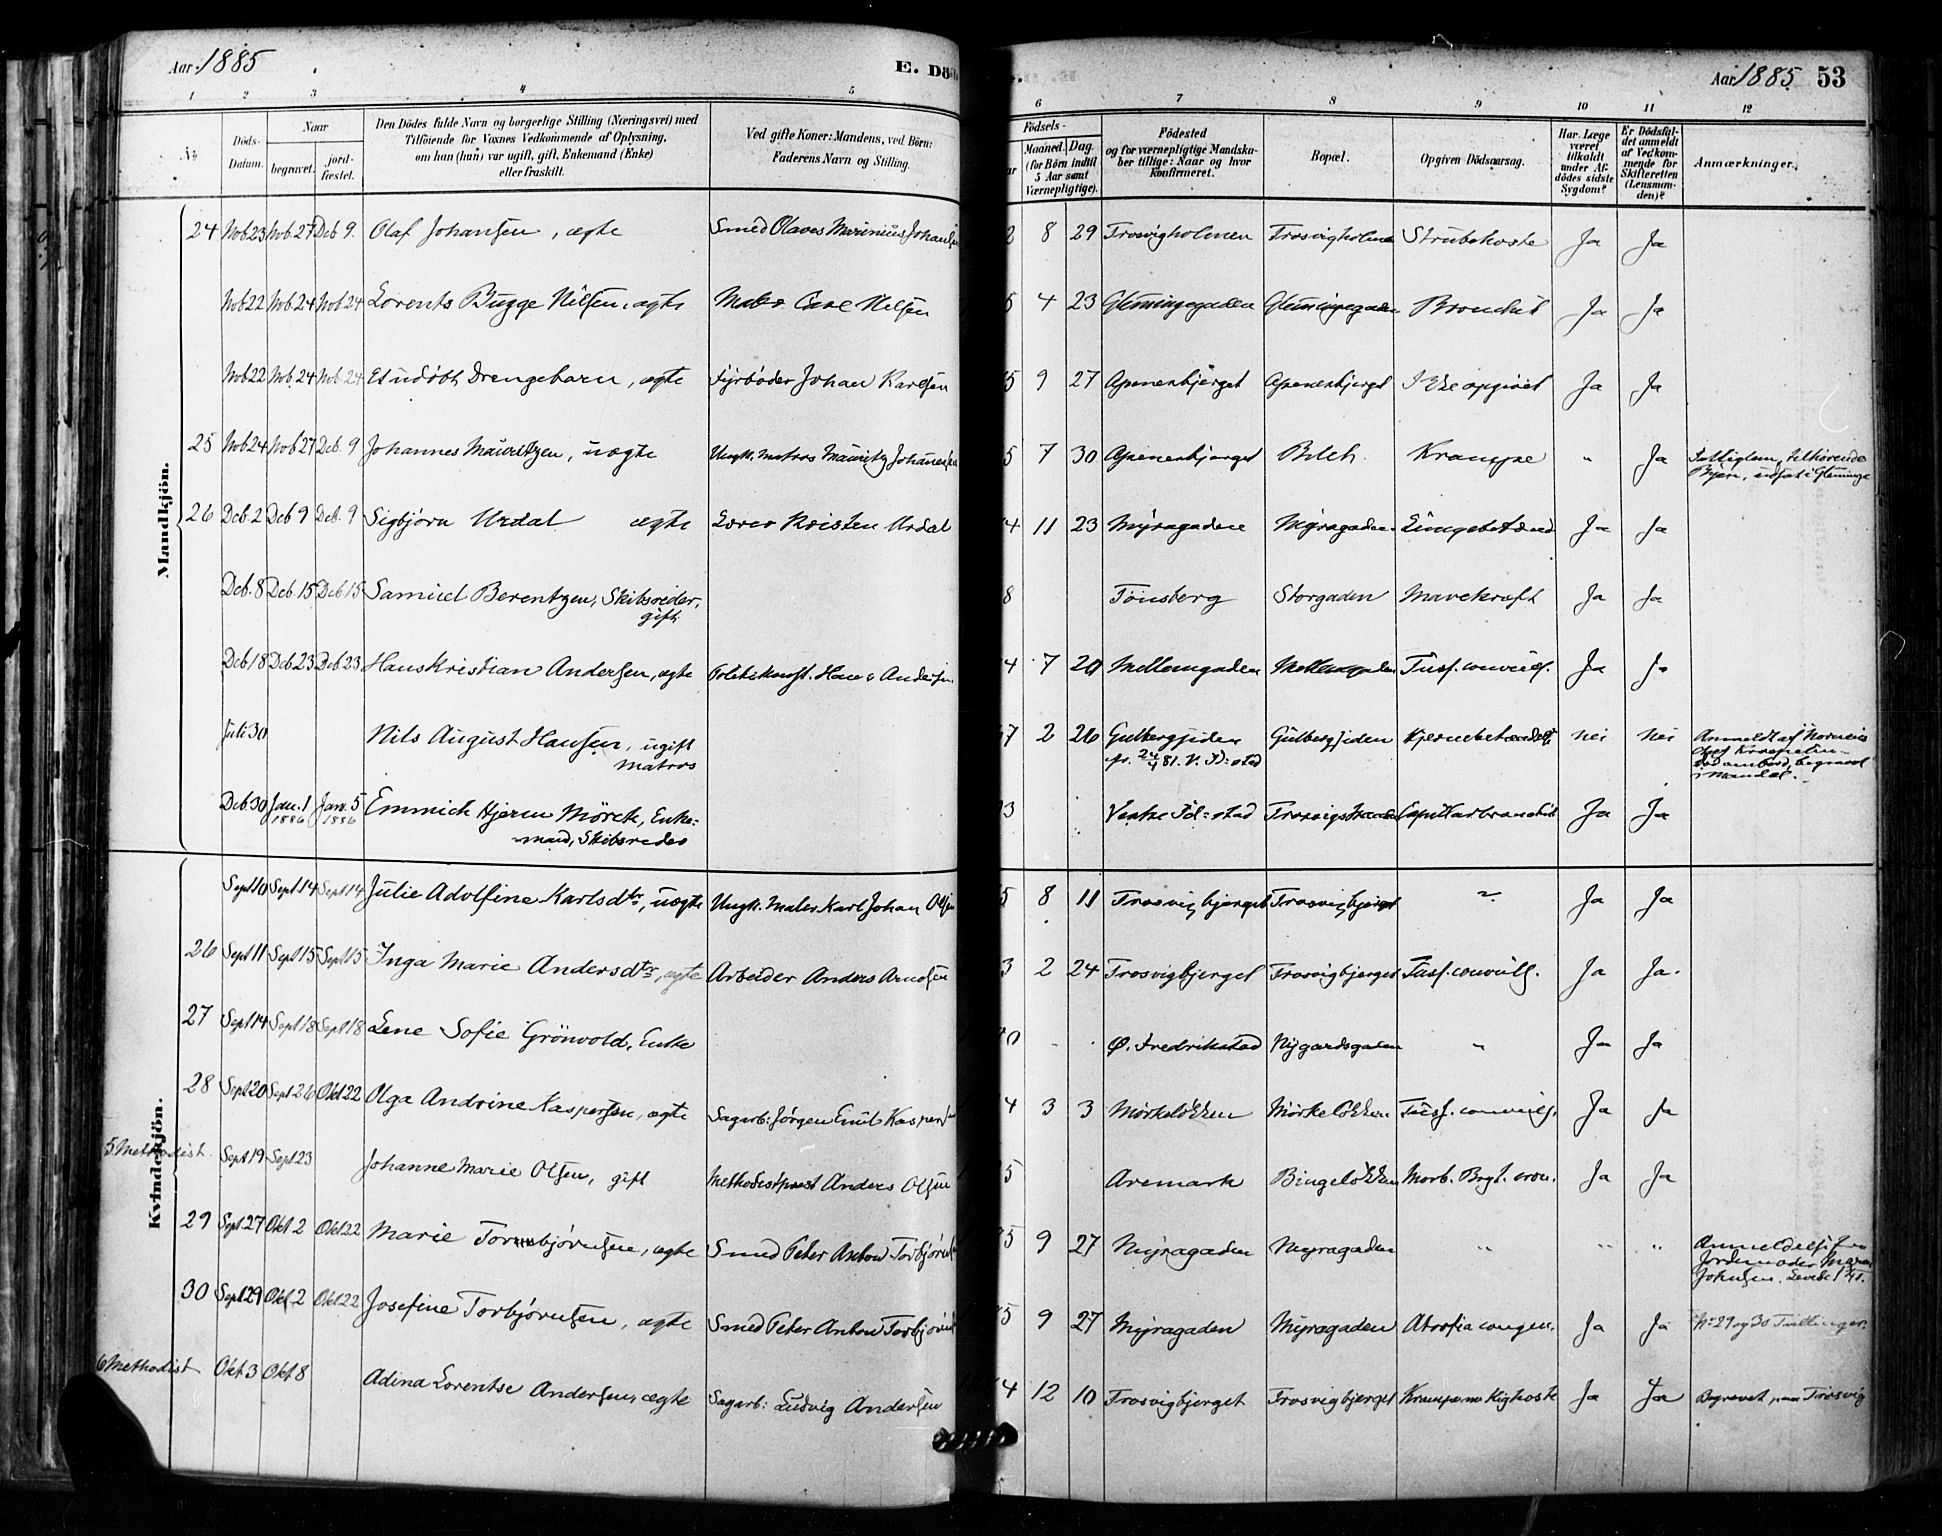 Aar 1885
E. Dö
Aar 1885 53
1 2 3 4 5 6 7 8 9 10 11 12
№
Döds-
Datum.
Naar
begravet.
jord-
fæstet.
Den Dödes fulde Navn og borgerlige Stilling (Næringsvei) med
Tilföiende for Voxnes Vedkommende af Oplysning,
om han (hun) var ugift, gift, Enkemand (Enke)
eller fraskilt.
Ved gifte Koner: Mandens, ved Börn:
Faderens Navn og Stilling.
Födsels-
Maaned. Dag.
(for Börn indtil
5 Aar samt
Værnepligtige).
Födested
og for værnepligtige Mandska-
ber tillige: Naar og hvor
Konfirmeret.
Bopæl.
Opgiven Dödsaarsag.
Har Læge
været
tilkaldt
under Af-
dödes sidste
Sygdom?
Er Dödsfal-
det anmeldt
af Vedkom-
mende for
Skifteretten
(Lensman-
den)?
Anmærkninger.
Mandkjön.
24 Nob 23 Nob. 27 Deb 9. Olaf Johansen, ægte Smed Olaves Marinius Johansen 2 8 29 Trosvigholmen Trosvigholmen Strubehoste Ja Ja
Nob 22 Nob. 24 Nob 24 Lorents Bugge Nilsen, ægte Carl Nilsen 5 4 23 Glemmingegaden Glemmingegaden Bronchit Ja Ja
Nob 22 Nob. 24 Nob. 24 Et udøbt Drengebarn, ægte Fyrbøder Johan Karlsen 5 9 27 Apenesbjerget Apenesbjerget Ikke opgivet Ja Ja
25 Nob 24 Nob 27 Deb. 9 Johannes Mauritzen, uægte Ungk. Matros Mauritz Johannesen 5 7 30 Apenesbjerget Krampe " Ja
26 Deb. 2 Deb 9 Deb. 9 Sigbjørn Urdal ægte Kristen Urdal 4 11 23 Myragaden Myragaden Lungebetænd Ja Ja
Deb. 8 Deb. 15 Deb 15 Samuel Berentzen, Skibsreder,
gift. 8 Tönsberg Storgaden Mavekræft Ja Ja
Deb 18 Deb 23 Deb 23 Hans Kristian Andersen, ægte Politikonst. Hans Andersen 4 7 20 Mellemgaden Mellemgaden Tuss. convuls. Ja Ja
Juli 30 Nils August Hansen, ugift
Matros 7 2 26 Gulbergsiden Gulbergsiden Hjernebetændelse Nei Nei Anmeldt af
24/4 81. V. Fd:stad
Deb. 30 Jan. 1 Jan. 5 Emmich Hjerm Mörch, Enke-
1886 1886 mand, Skibsreder 3 Vestre Fd:stad Trosvigstranden Capillarbronchit Ja Ja
Kvindekjön.
Sept 10 Sept 14 Sept 14 Julie Adolfine Karlsdtr, uægte Ungk. Maler Karl Johan Olsen 5 8 11 Trosvigbjerget Trosvigbjerget " Ja Ja
26 Sept 11 Sept 15 Sept 15 Inga Marie Andersdtr, ægte Arbeider Anders Arnesen 3 2 24 Trosvigbjerget Trosvigbjerget Tuss. convuls. Ja Ja.
27 Sept 14 Sept 18 Sept 18 Lene Sofie Grönvold, Enke 0 Ø. Fredrikstad Nygaardsgaden " Ja Ja
28 Sept 20 Sept 26 Okt 22 Olga Andrine Kaspersen, ægte Sagarb: Jørgen Emil Kaspersen 4 3 3 Mørkeløkken Mörkeløkken Tuss. convuls. Ja Ja
5. Methodist. Sept 19 Sept 23 Johanne Marie Olsen, gift Methodistprest Anders Olsen 5 Aremark Bingeløkken Morb. Brgt. cron. Ja Ja
29 Sept. 27 Okt 2 Okt 22 Marie Torbjørnsen, ægte Smed Peter Anton Torbjørnsen 5 9 27 Myragaden Myragaden " " " Anmeldelse fra
Jordemoder Maren
Johnsen. Levede 1
30 Sept. 29 Okt 2 Okt 22 Josefine Torbjørnsen, ægte Smed Peter Anton Torbjørnsen 5 9 27 Myragaden Myragaden Atrofia congen. Ja Ja Nr 29 og 30 Tvillinger.
6 Methodist Okt. 3 Okt 8 Adina Lorentse Andersen, ægte Sagarb: Ludvig Andersen 4 12 10 Trosvigbjerget Trosvigbjerget Krampe m Kighoste Ja Ja Begravet paa Trosvig